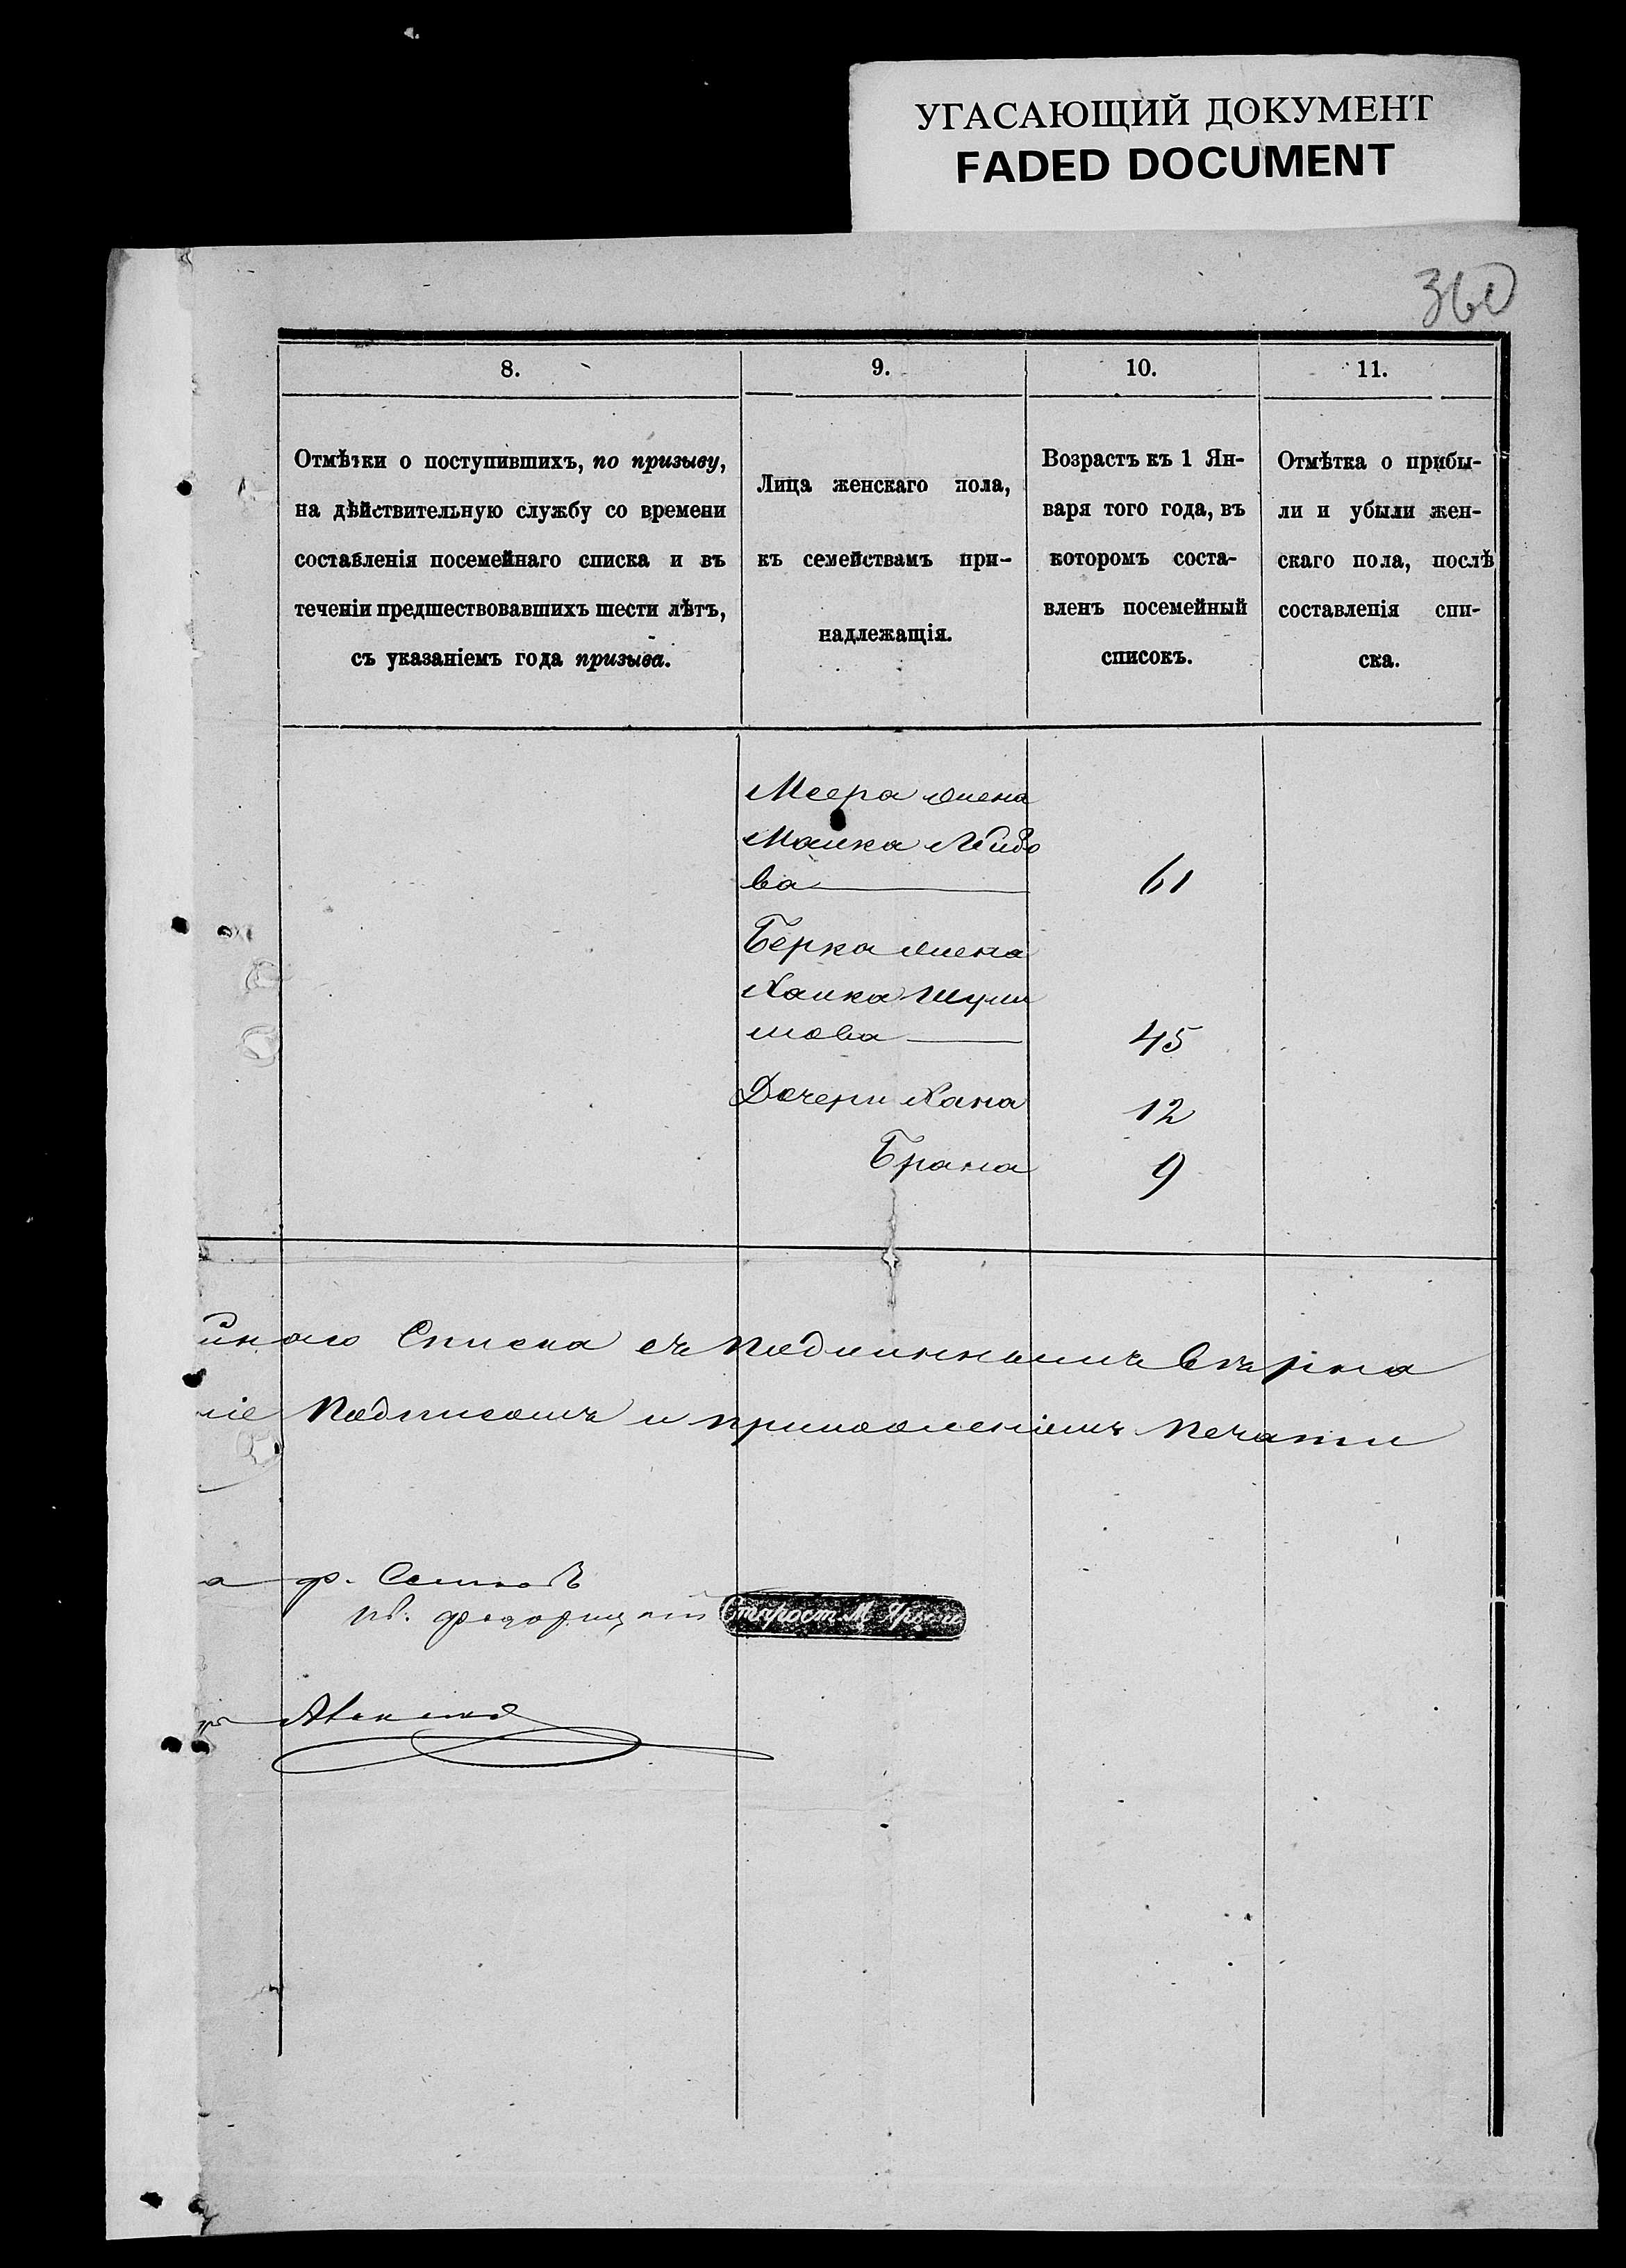 УГАСАЮЩИЙ ДОКУМЕНТ
FADED DOCUMENT
360
8.
9.
10.
11.
Отмѣтки о поступившихъ, по призыву,
на дѣйствительную службу со времени
составленія посемейнаго списка и въ
теченіи предшествовавшихъ шести лѣтъ,
съ указаніемъ года призыва.
Лица женскаго пола,
къ семействамъ при-
надлежащія.
Возрастъ къ 1 Ян-
варя того года, въ
которомъ соста-
вленъ посемейный
списокъ.
Отмѣтка о прибы-
ли и убыли жен-
скаго пола, послѣ
составленія спи-
ска.
Меера жена
Малка
ва 61
Берка жена
Хаика Шули
мова 45
Дочери Хана 12
Брана 9
йнаго Списка съ подлиннымъ вѣрна
ніе подписомъ и приложеніемъ печати
Старост. М